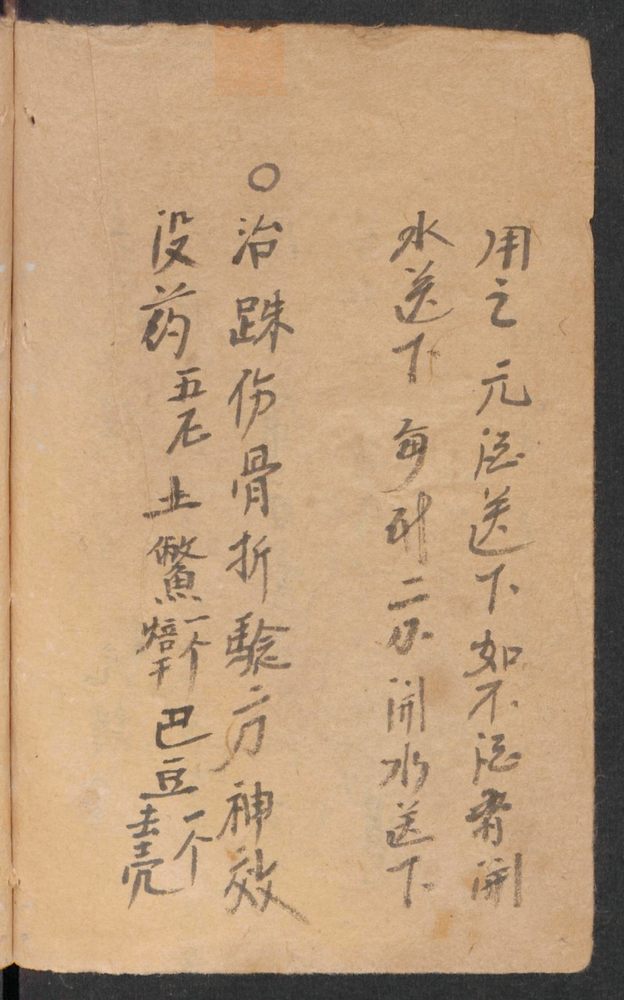 用之 元酒送下 如不酒者開
水送下 每付二分 開水送下
○治跌伤骨折驗方神效
没药五分 土鱉一个焙干 巴豆一个去壳